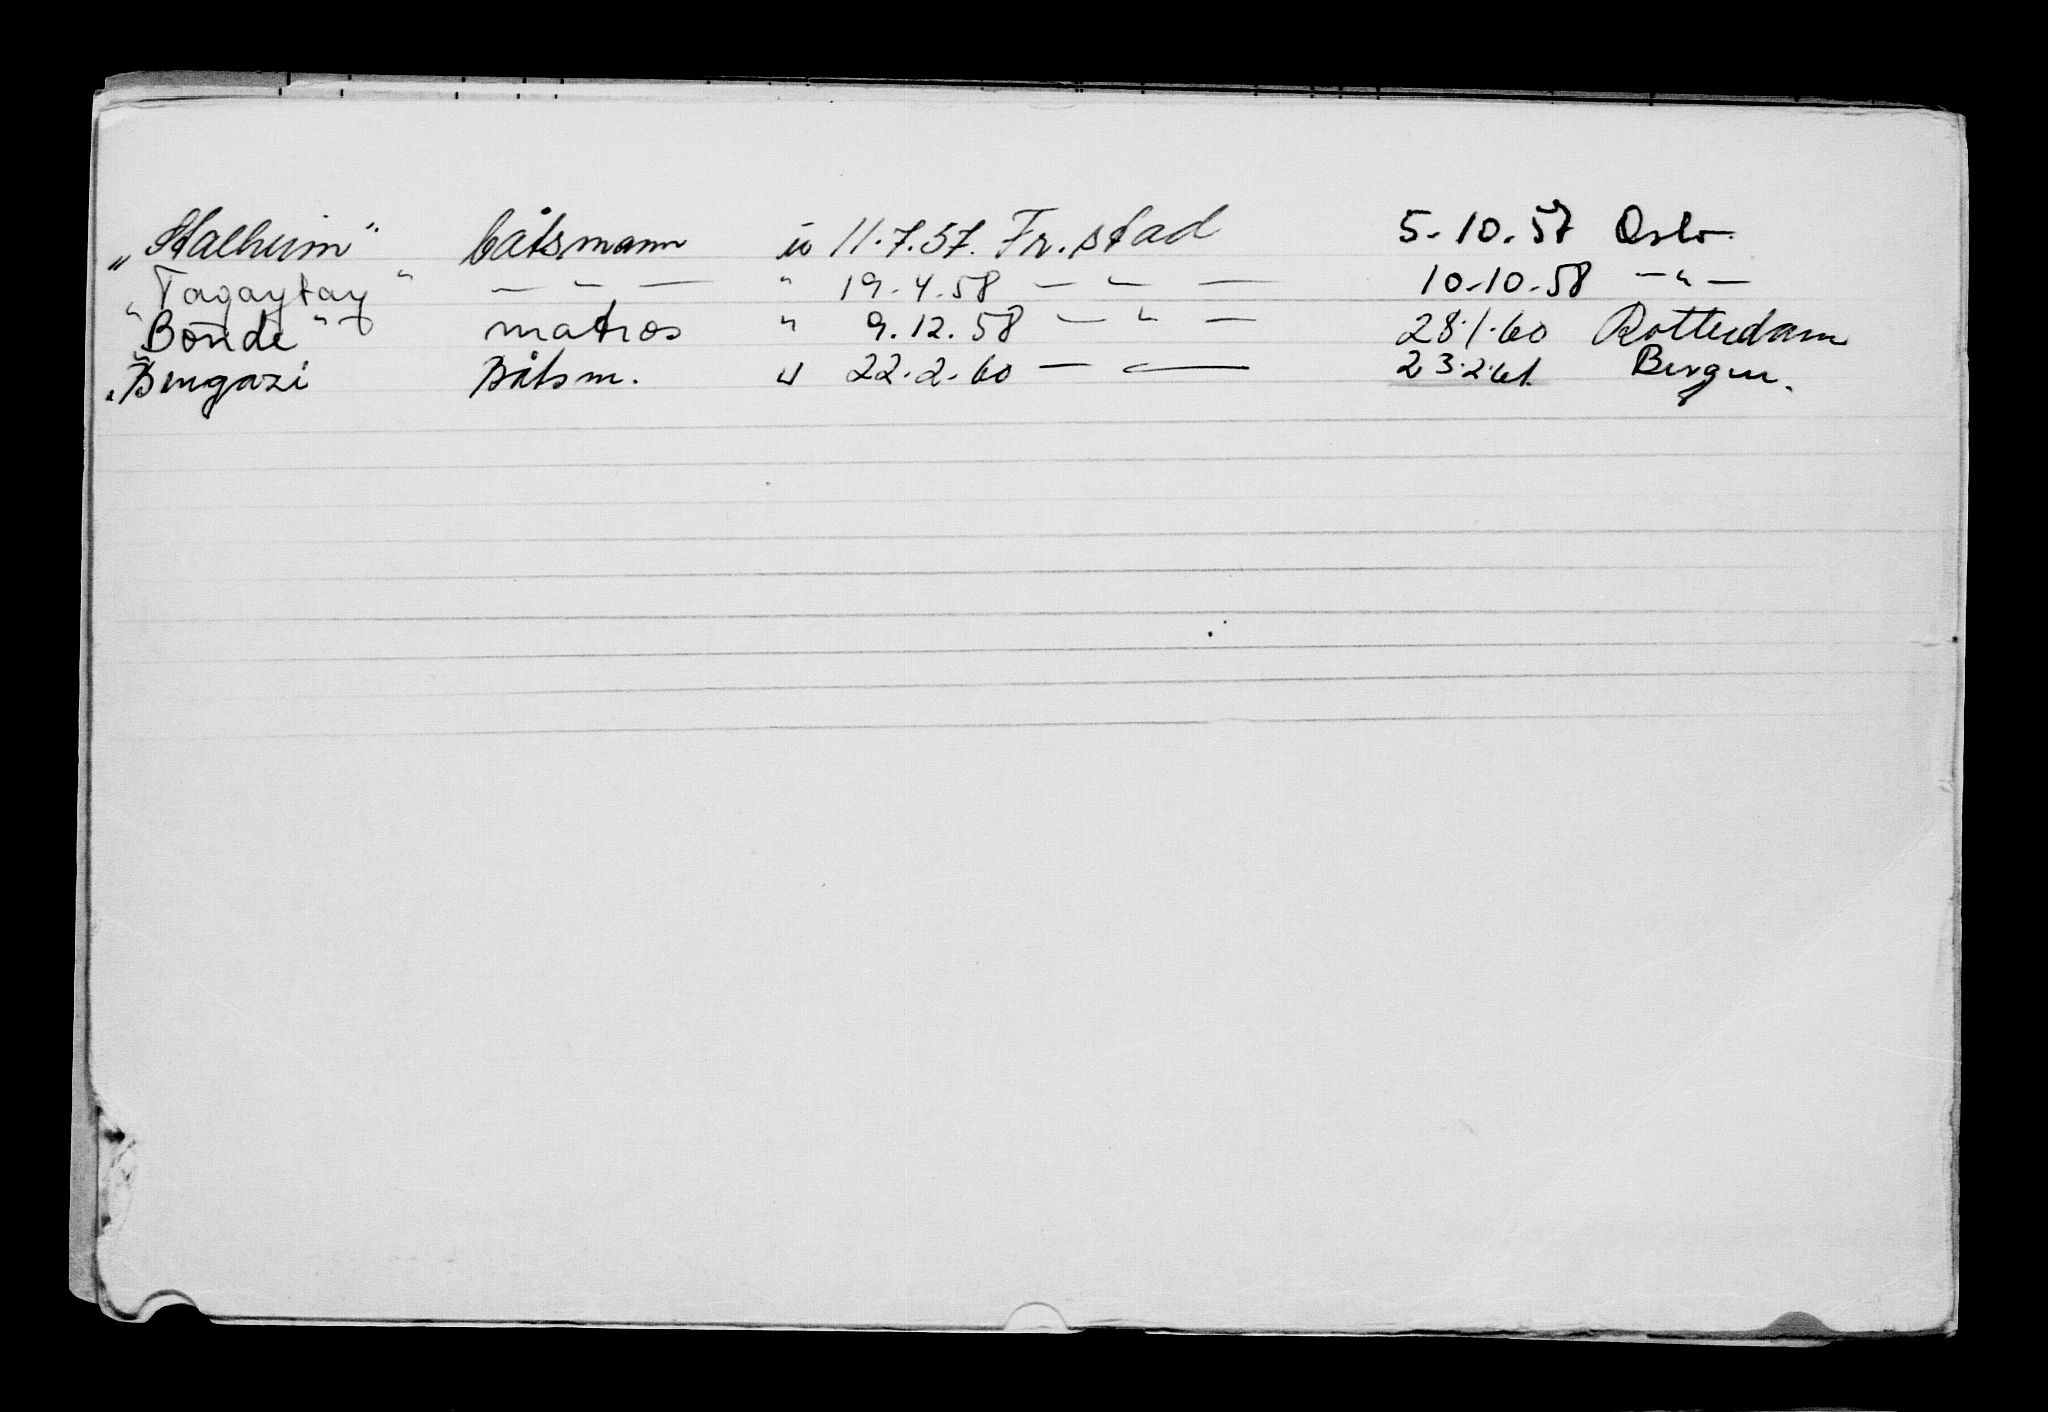 „Stalheim" båtsmann u 11.7.57. Fr.stad 5.10.57 Oslo.
"Tagaytay" — " — " 19.4.58 — " — 10.10.58 — " —
"Bonde" matros " 9.12.58 — " — 28.1.60 Rotterdam
"Bengazi" Båtsm. u 22.2.60 — " — 23.2.61. Bergen.